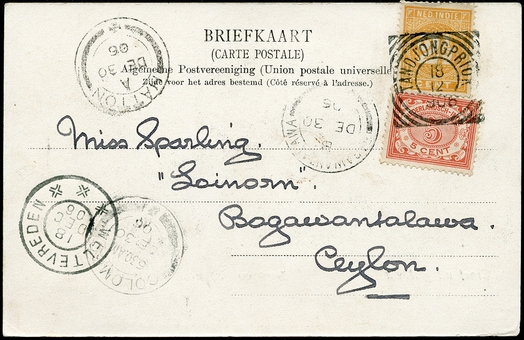 BRIEFKAART
(CARTE POSTALE)
Algemeene Postvereeniging (Union postale universelle
Zijde voor het adres bestemd (Côté réservé à l'adresse.)
NED INDIE
TANDJONGPRIOK
18
12
1906
5 CENT
HATTON
A
DE 30
06
DE 30
06
Miss Sparling.
"Loinorn".
Bogawantalawa.
Ceylon.
WELTEVREDEN
18
06
COLOM